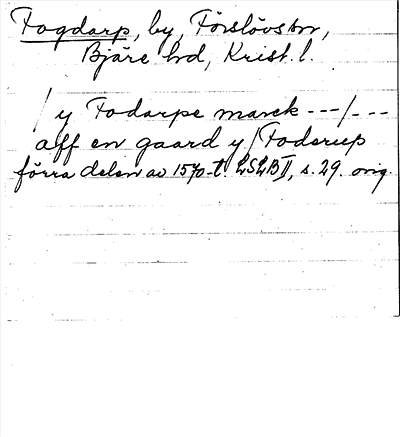 Fogdarp, by, Förslövs sn,
Bjäre hd, Krist. l.
/ y Fodarpe marck ---/---
aff en gaard y / Foderup
förra delen av 1570-t. LSLB II, s. 29. orig.